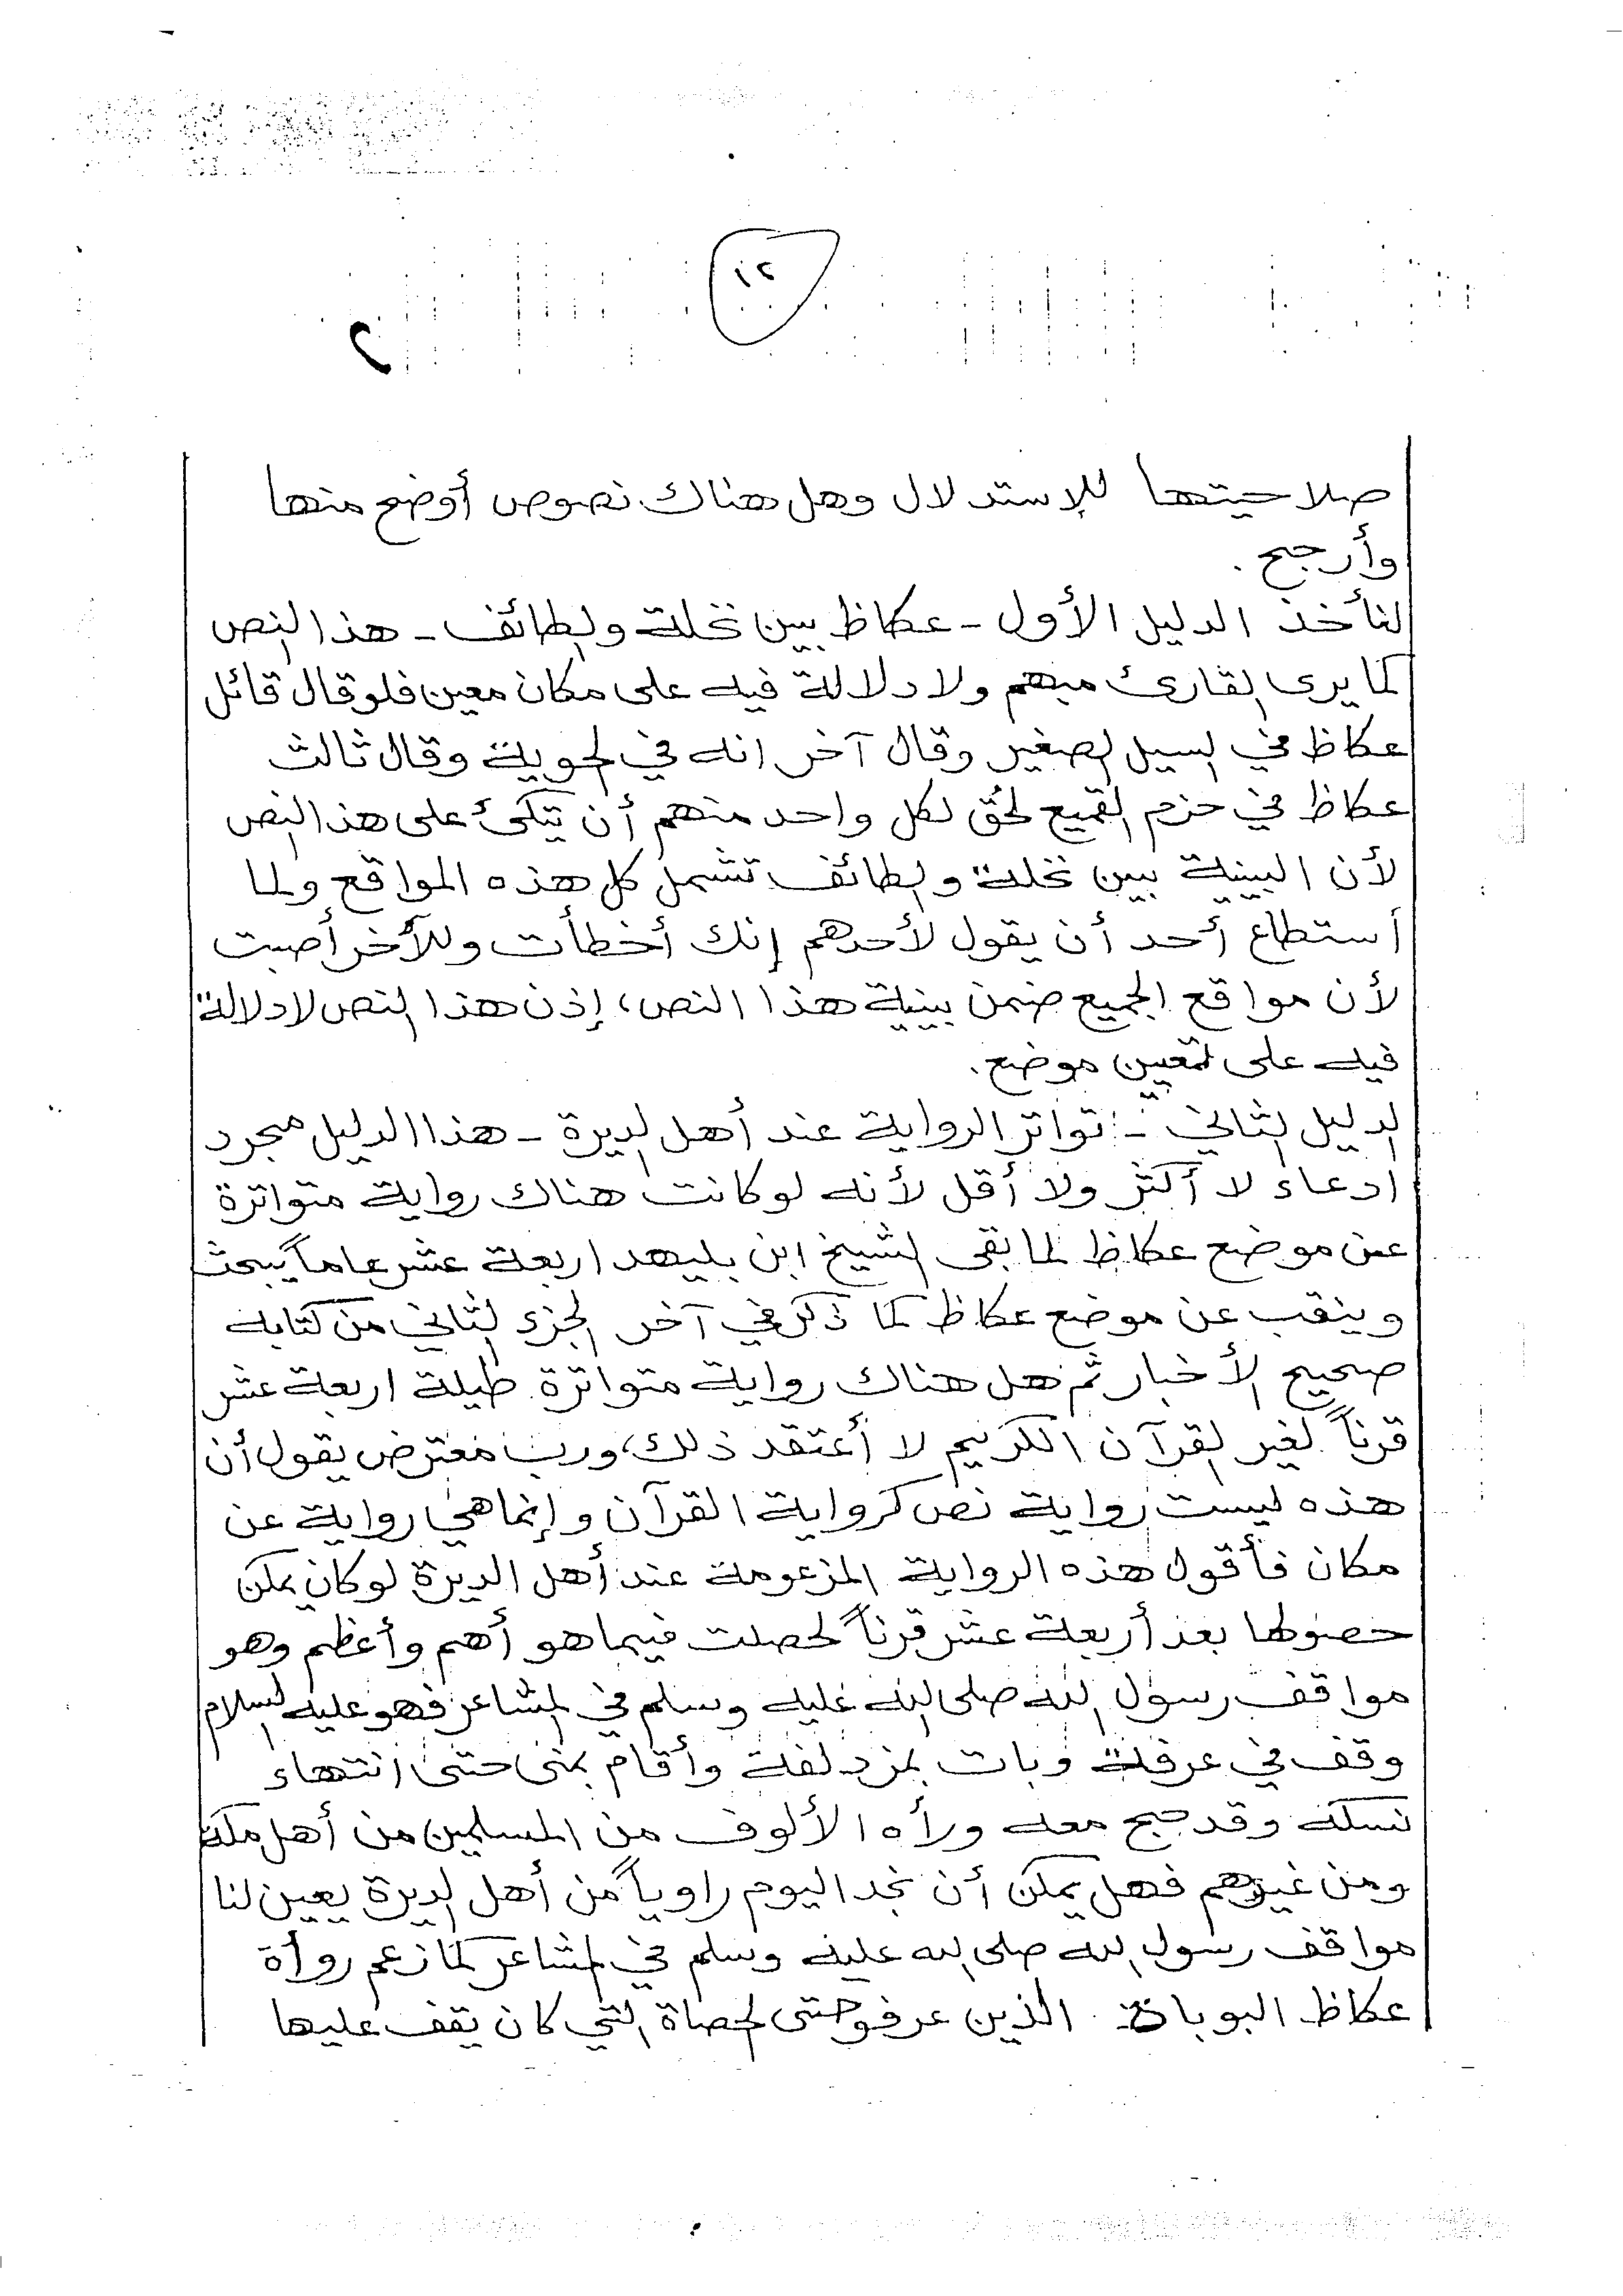 ١٢
٢
صلاحيتها للإستدلال وهل هناك نصوص أوضح منها
وأرجح .
لنأخذ الدليل الأول - عكاظ بين نخلة والطائف - هذا النص
كما يرى القارئ مبهم ولا دلالة فيه على مكان معين فلو قال قائل
عكاظ في السيل الصغير وقال آخر انه في الحوية وقال ثالث
عكاظ في حزم القميع لحُق لكل واحد منهم أن يتكئ على هذا النص
لأن البينية بين نخلة والطائف تشمل كل هذه المواقع ولما
أستطاع أحد أن يقول لأحدهم إنك أخطأت وللأخر أصبت
لأن مواقع الجميع ضمن بينية هذا النص، إذن هذا النص لا دلالة
فيه على تعيين موضع.
الدليل الثاني - تواتر الرواية عند أهل الديرة - هذا الدليل مجرد
ادعاء لا أكثر ولا أقل لأنه لو كانت هناك رواية متواترة
عن موضع عكاظ لما بقى الشيخ ابن بليهد اربعة عشر عاماً يبحث
وينقب عن موضع عكاظ كما ذكر في آخر الجزء الثاني من كتابه
صحيح الأخبار ثم هل هناك رواية متواترة طيلة اربعة عشر
قرناً لغير القرآن الكريم لا أعتقد ذلك، ورب معترض يقول أن
هذه ليست رواية نص كرواية القرآن وإنما هي رواية عن
مكان فأقول هذه الرواية المزعومة عند أهل الديرة لو كان يمكن
حصولها بعد أربعة عشر قرناً لحصلت فيما هو أهم وأعظم وهو
مواقف رسول الله صلى الله عليه وسلم في المشاعر فهو عليه السلام
وقف في عرفة وبات بمزدلفة وأقام بمنى حتى انتهاء
نسكه وقد حج معه ورأه الألوف من المسلمين من أهل مكة
ومن غيرهم فهل يمكن أن نجد اليوم راوياً من أهل الديرة يعين لنا
مواقف رسول الله صلى الله عليه وسلم في المشاعر كما زعم رواة
عكاظ البوباة الذين عرفو حتى الحصاة التي كان يقف عليها